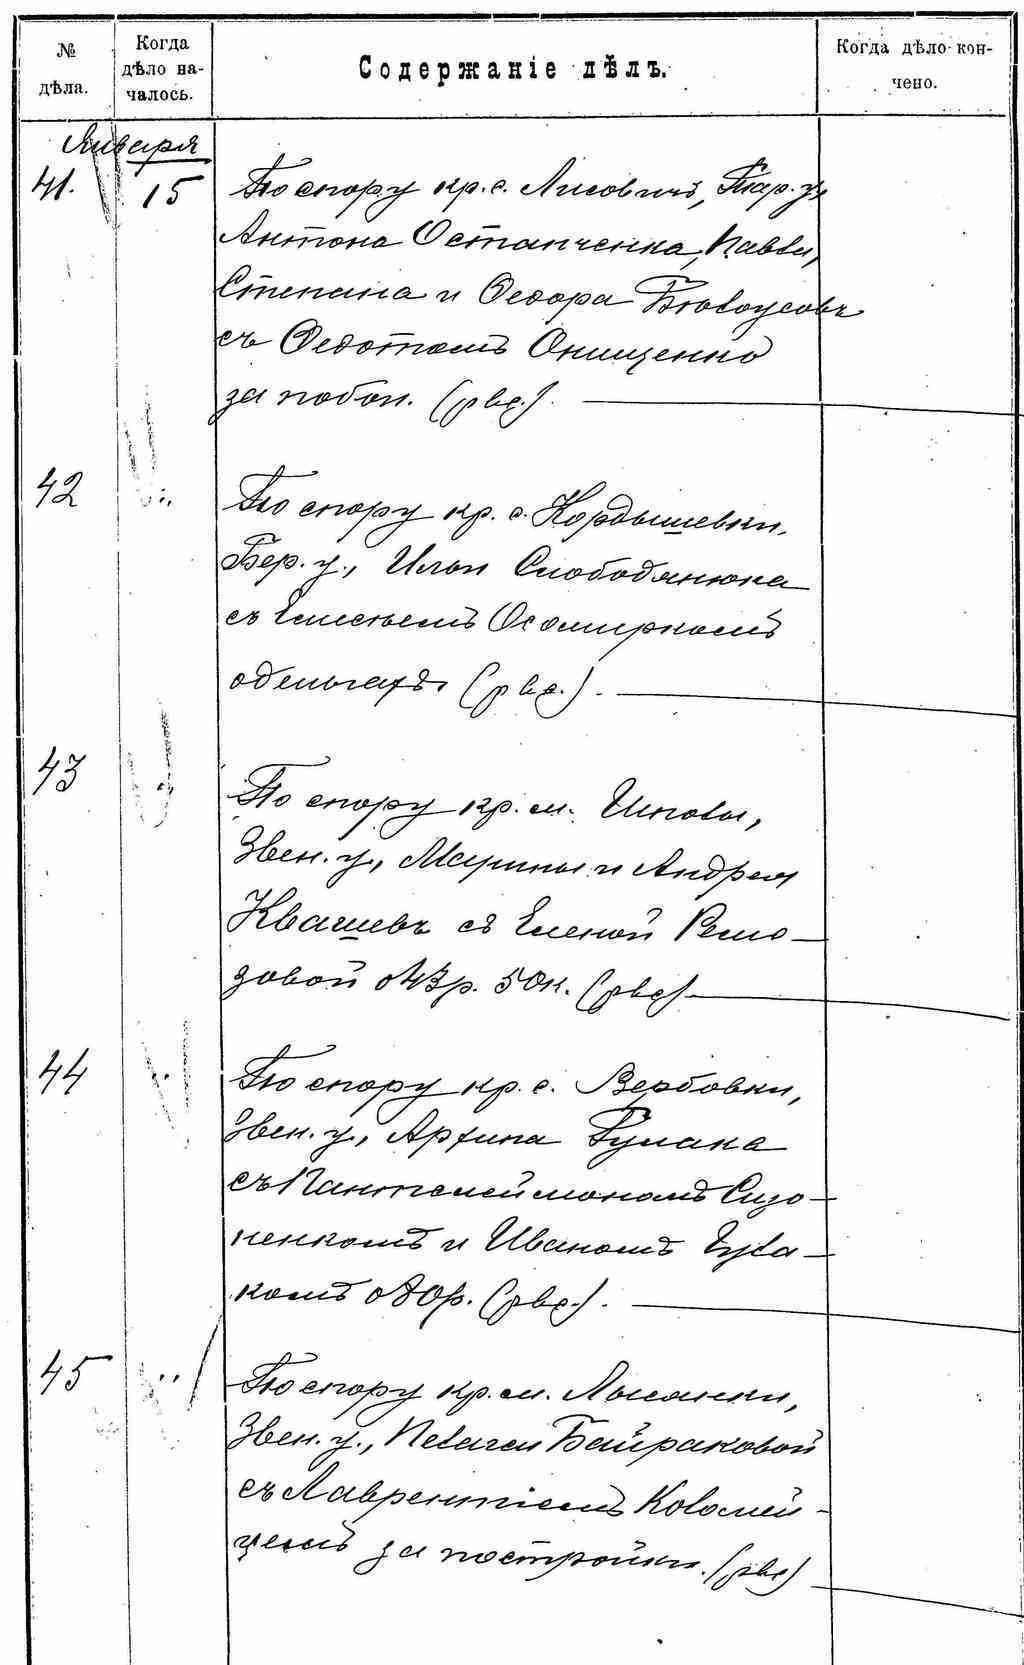 № дѣла.
Когда дѣло началось.
Содержаніе дѣлъ.
Когда дѣло кончено.
Января
41.
15
По спору кр. с. Лисовичъ, Тар. у,
Антона Остапченка, Павла,
Степана и Ѳедора Бѣлоусовъ
съ Ѳедотомъ Онищенко
за побои.
42
"
По спору кр. с. Кордышевки,
Бер. у., Ильи Слободянюка
съ
о деньгахъ
43
"
По спору кр. м.
Звен. у., Марины и Андрея
Квашевъ съ Еленой Ремо-
зовой о 43 р. 50 к.
44
"
По спору кр. с. Вербовки,
Звен. у., Архипа Гулака
съ Пантелеймономъ Сизо-
ненкомъ и Иваномъ Гула-
комъ о 80 р.
45
"
По спору кр. м. Лысянки,
Звен. у., Пелагеи Байраковой
съ Лаврентіемъ Коломей-
цемъ за постройки.